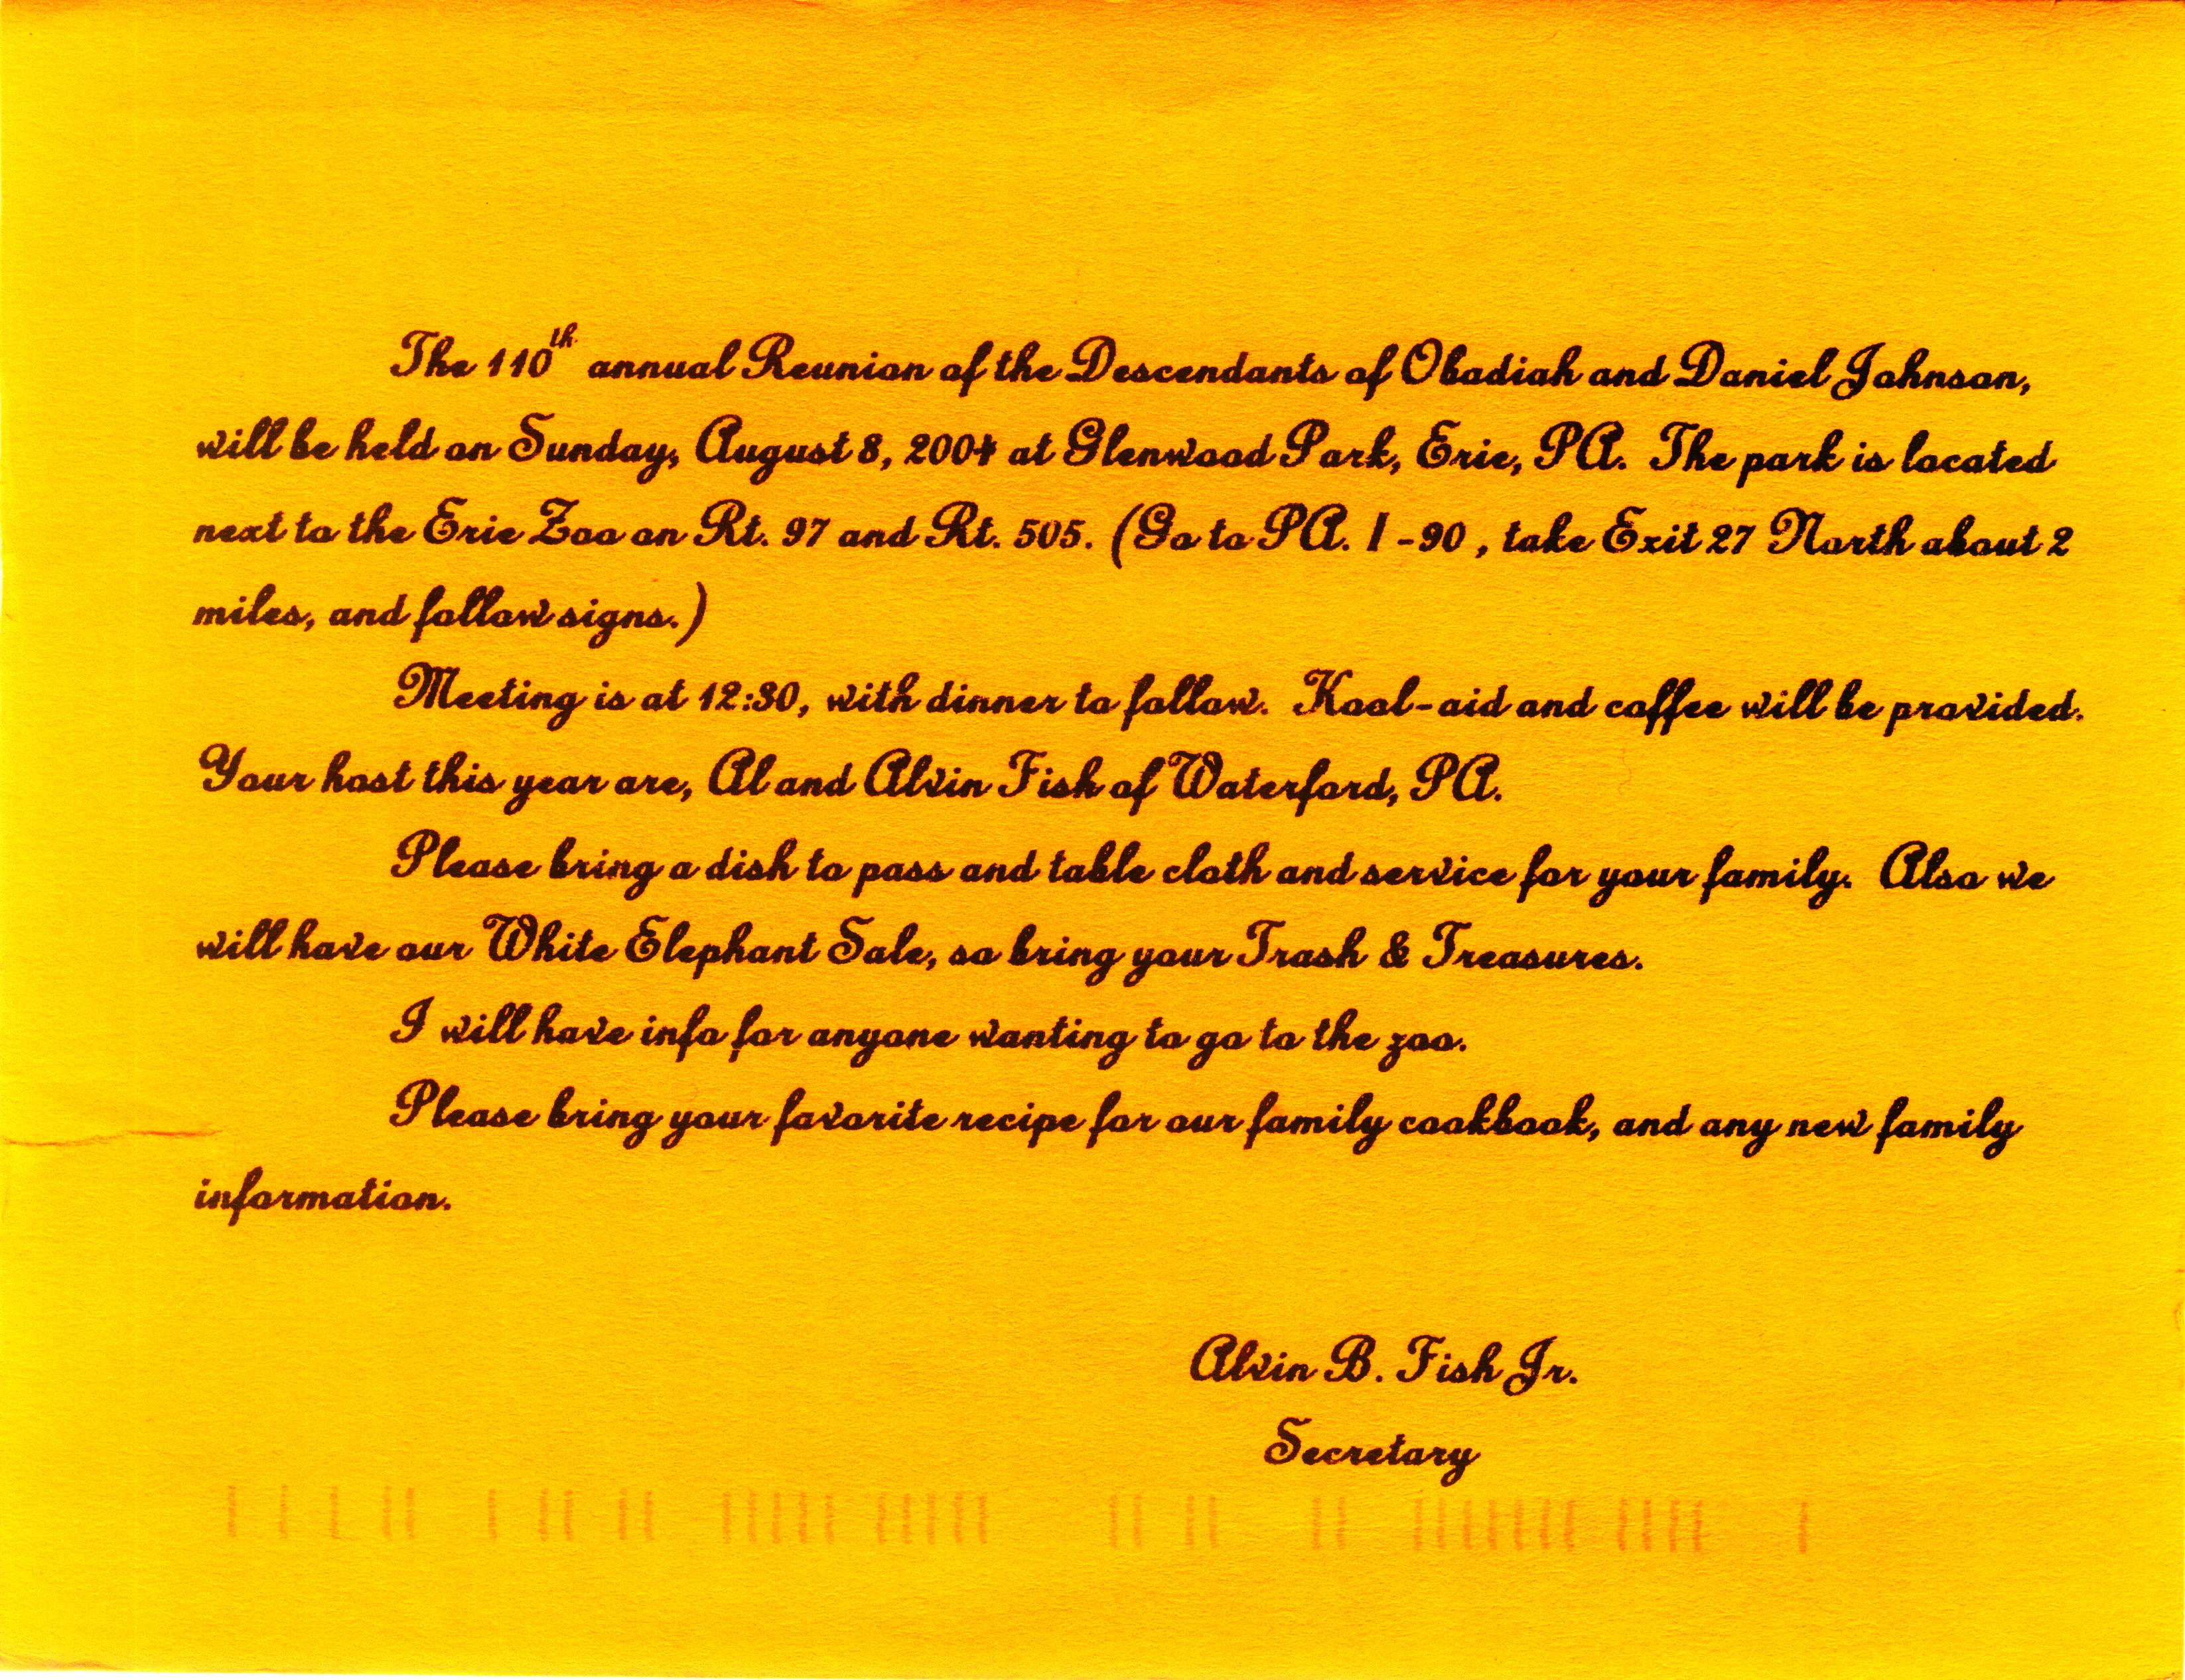 The 110th annual Reunion of the Descendants of Obadiah and Daniel Johnson,
will be held on Sunday, August 8, 2004 at Glenwood Park, Erie, PA. The park is located
next to the Erie Zoo on Rt. 97 and Rt. 505. (Go to PA. I-90, take Exit 27 North about 2
miles, and follow signs.)
Meeting is at 12:30, with dinner to follow. Kool-aid and coffee will be provided.
Your host this year are, Al and Alvin Fish of Waterford, PA.
Please bring a dish to pass and table cloth and service for your family. Also we
will have our White Elephant Sale, so bring your Trash & Treasures.
I will have info for anyone wanting to go to the zoo.
Please bring your favorite recipe for our family cookbook, and any new family
information.
Alvin B. Fish Jr.
Secretary